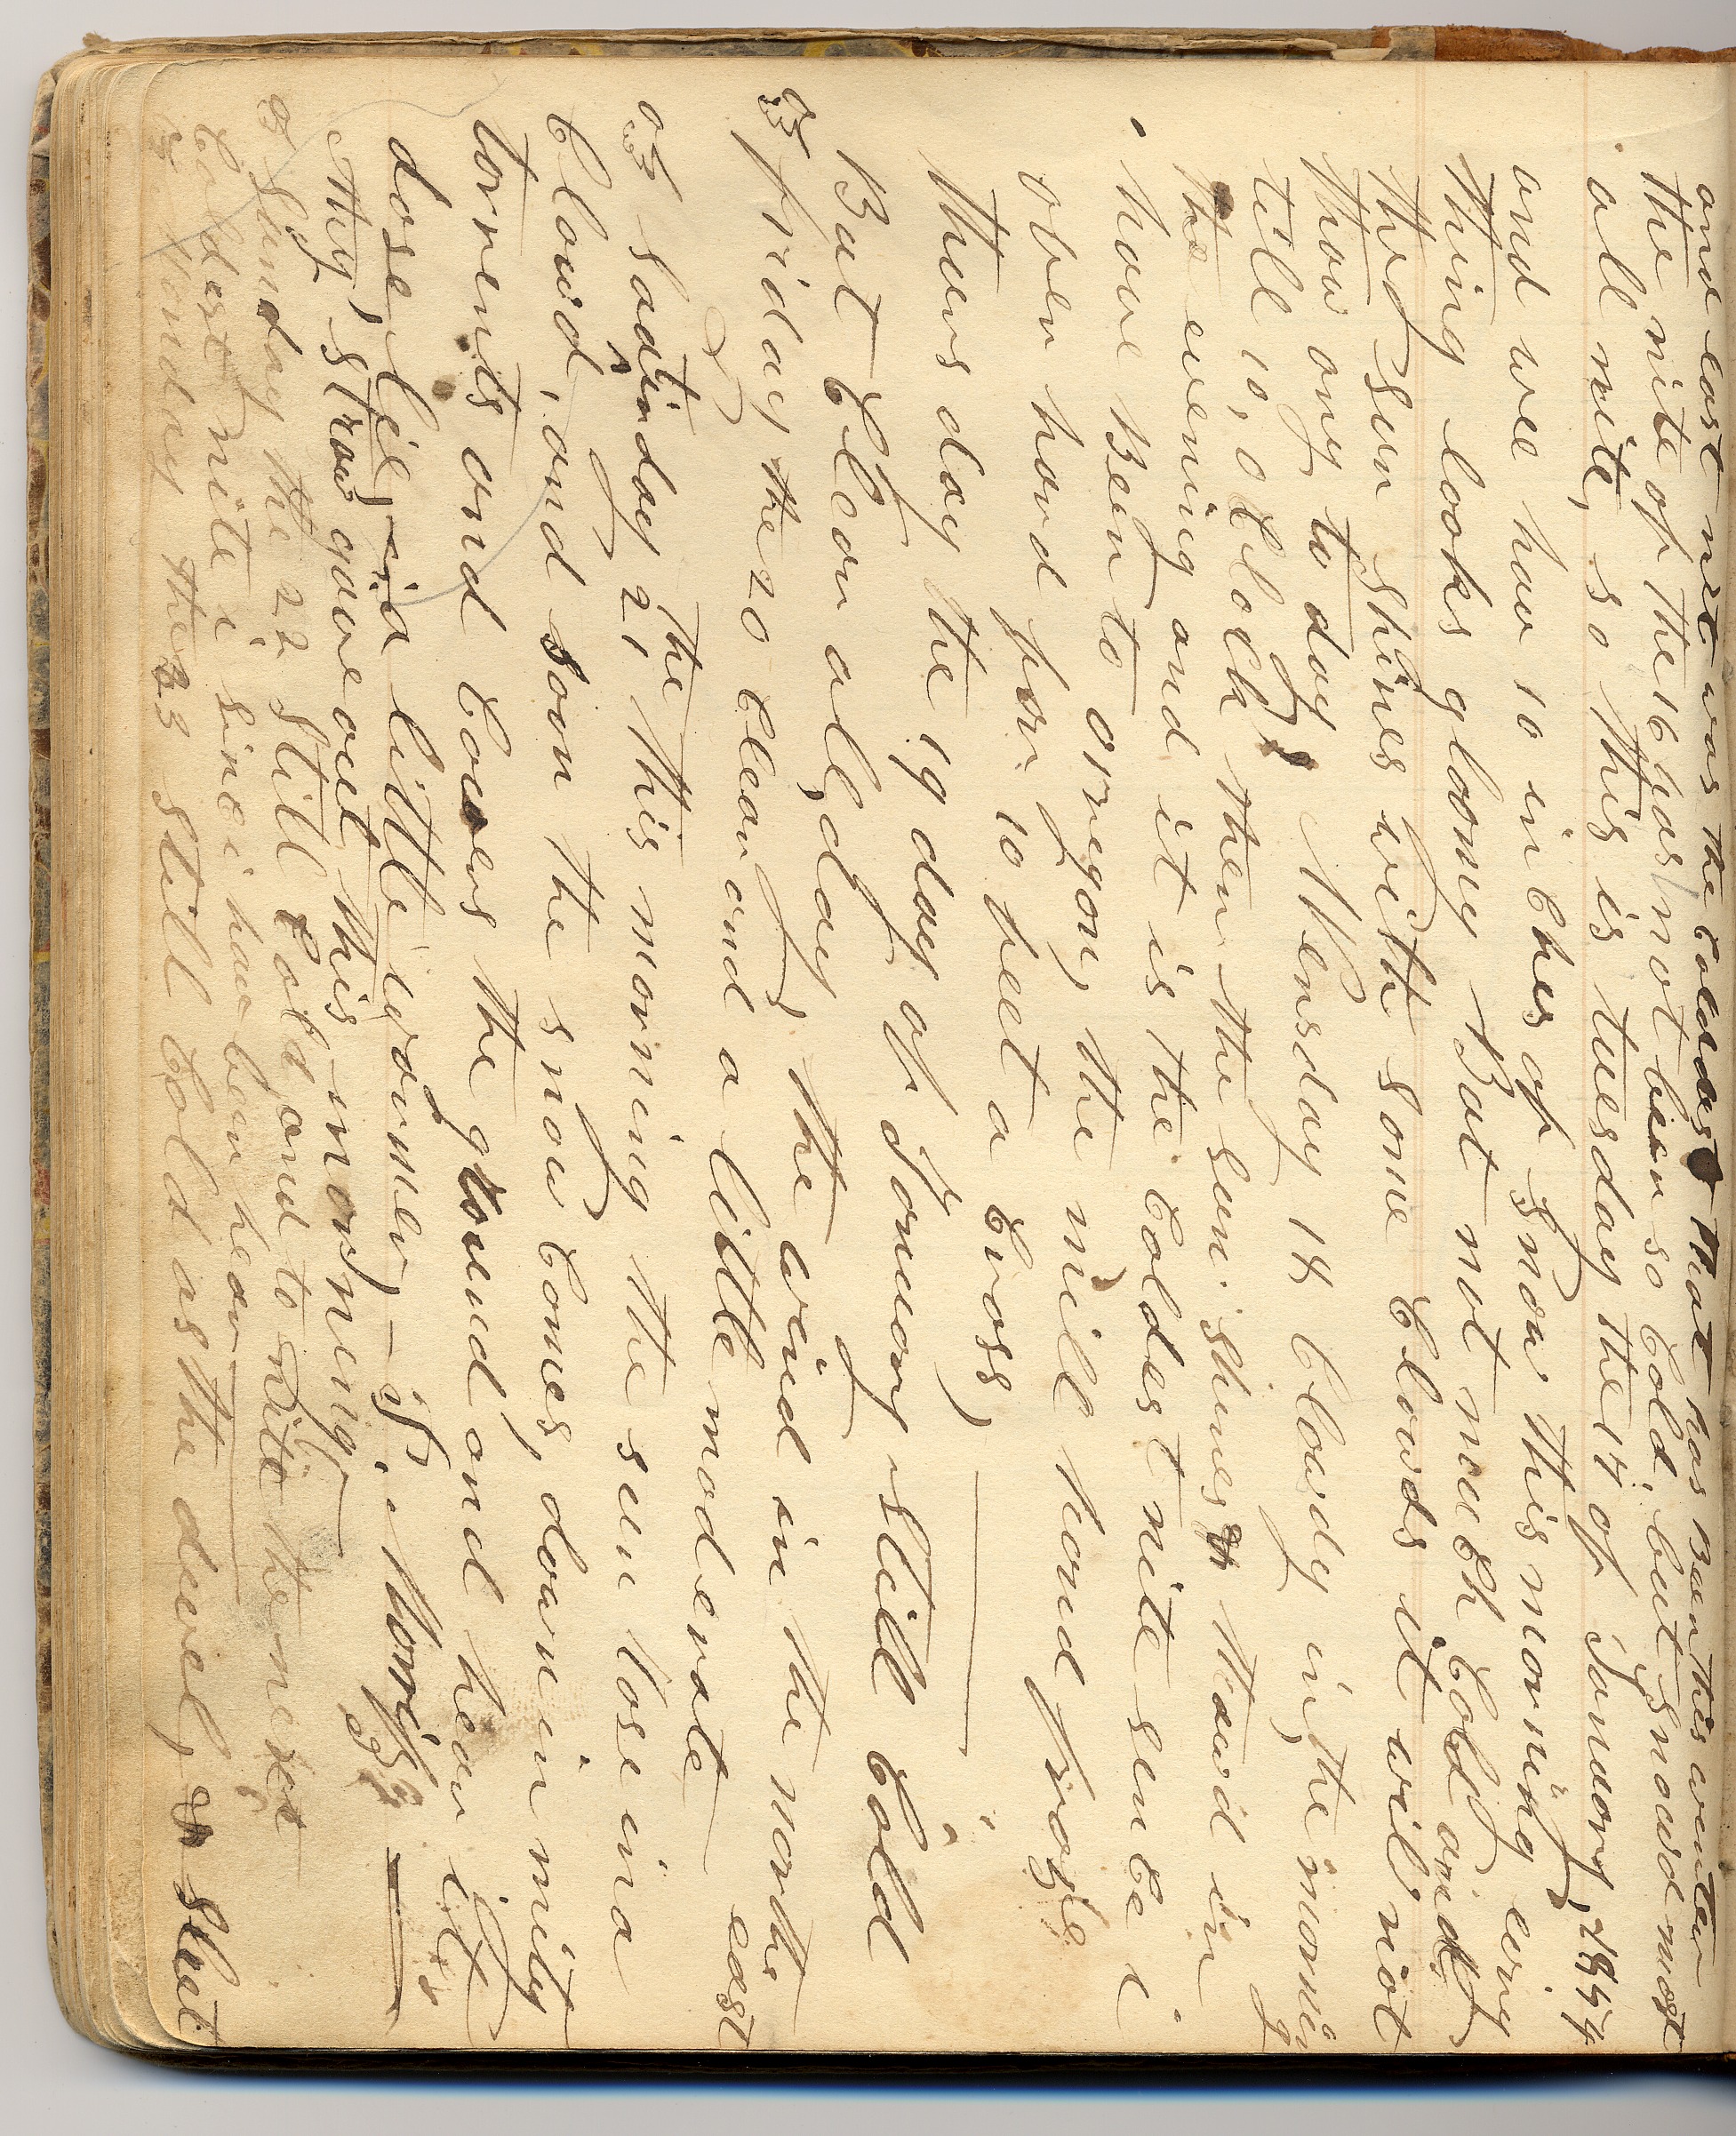 and last nite was the Coldest that has Been this winter
the nite of the 16 has not been so Cold, but snowd most
all nite, so this is tuesday the 17 of January, 1854
and wee hav 10 inches of snow this morning evry
thing looks gloomy But not much Cold and
the sun shines with some Clowds it wil not
thow any to day Wensday 18 Clowdy in the morning
till 10, oclock then the sun shines & thawd in
the evening and it is the Coldest nite sence i
have Been to orregon, the mill pond froze
over hard for 10 feet a Cross,
thursday the 19 day of January still Cold
But Clear all day, the wind in the north east
friday the 20 Clear and a little moderate
saturday 21 the this morning the sun rose in a
Clowd, and soon the snow Comes, down in mity
torrents and Covers the ground and hear it
dose lie, in a little wormer,
they straw gave out this morning
sunday the 22 still Cold, and to nite the next
Coldest nite i sinc i hav been hear
monday the 23 still Cold as the devel, & shut